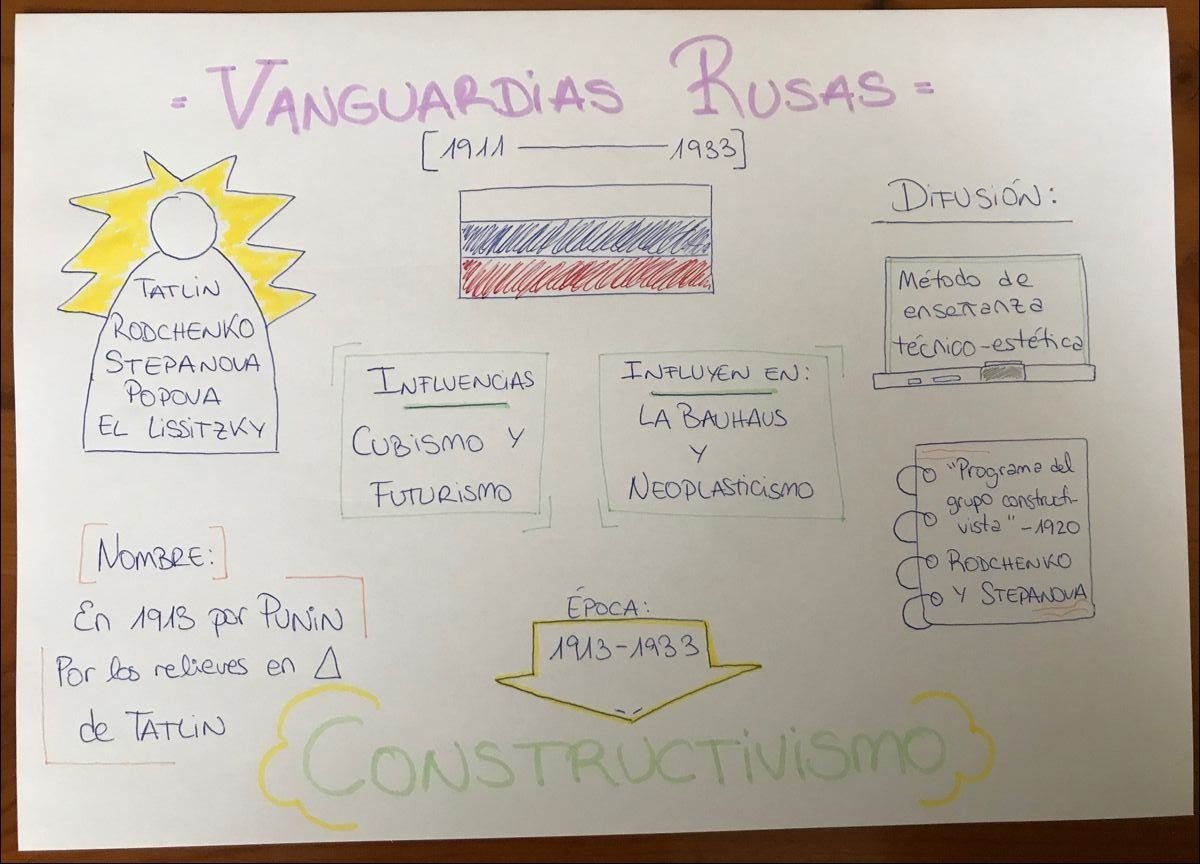 = VANGUARDIAS RUSAS =
[1911 — 1933]
TATLIN
RODCHENKO
STEPANOVA
POPOVA
EL LISSITZKY
INFLUENCIAS
CUBISMO Y
FUTURISMO
INFLUYEN EN:
LA BAUHAUS
Y
NEOPLASTICISMO
DIFUSIÓN:
Método de
enseñanza
técnico-estética
"Programa del
grupo constructi-
vista" - 1920
RODCHENKO
Y STEPANOVA
[NOMBRE:]
En 1913 por PUNIN
Por los relieves en △
de TATLIN
ÉPOCA:
1913-1933
CONSTRUCTIVISMO